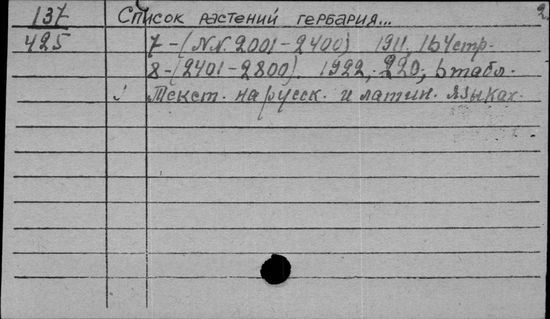 137 Список растений гербария... 2
425 7-(N.N. 2001-2400) 1911, 164стр.
8-(2401-2800). 1922, 220, 6 табл.
Текст. на русск. и латин. языках.